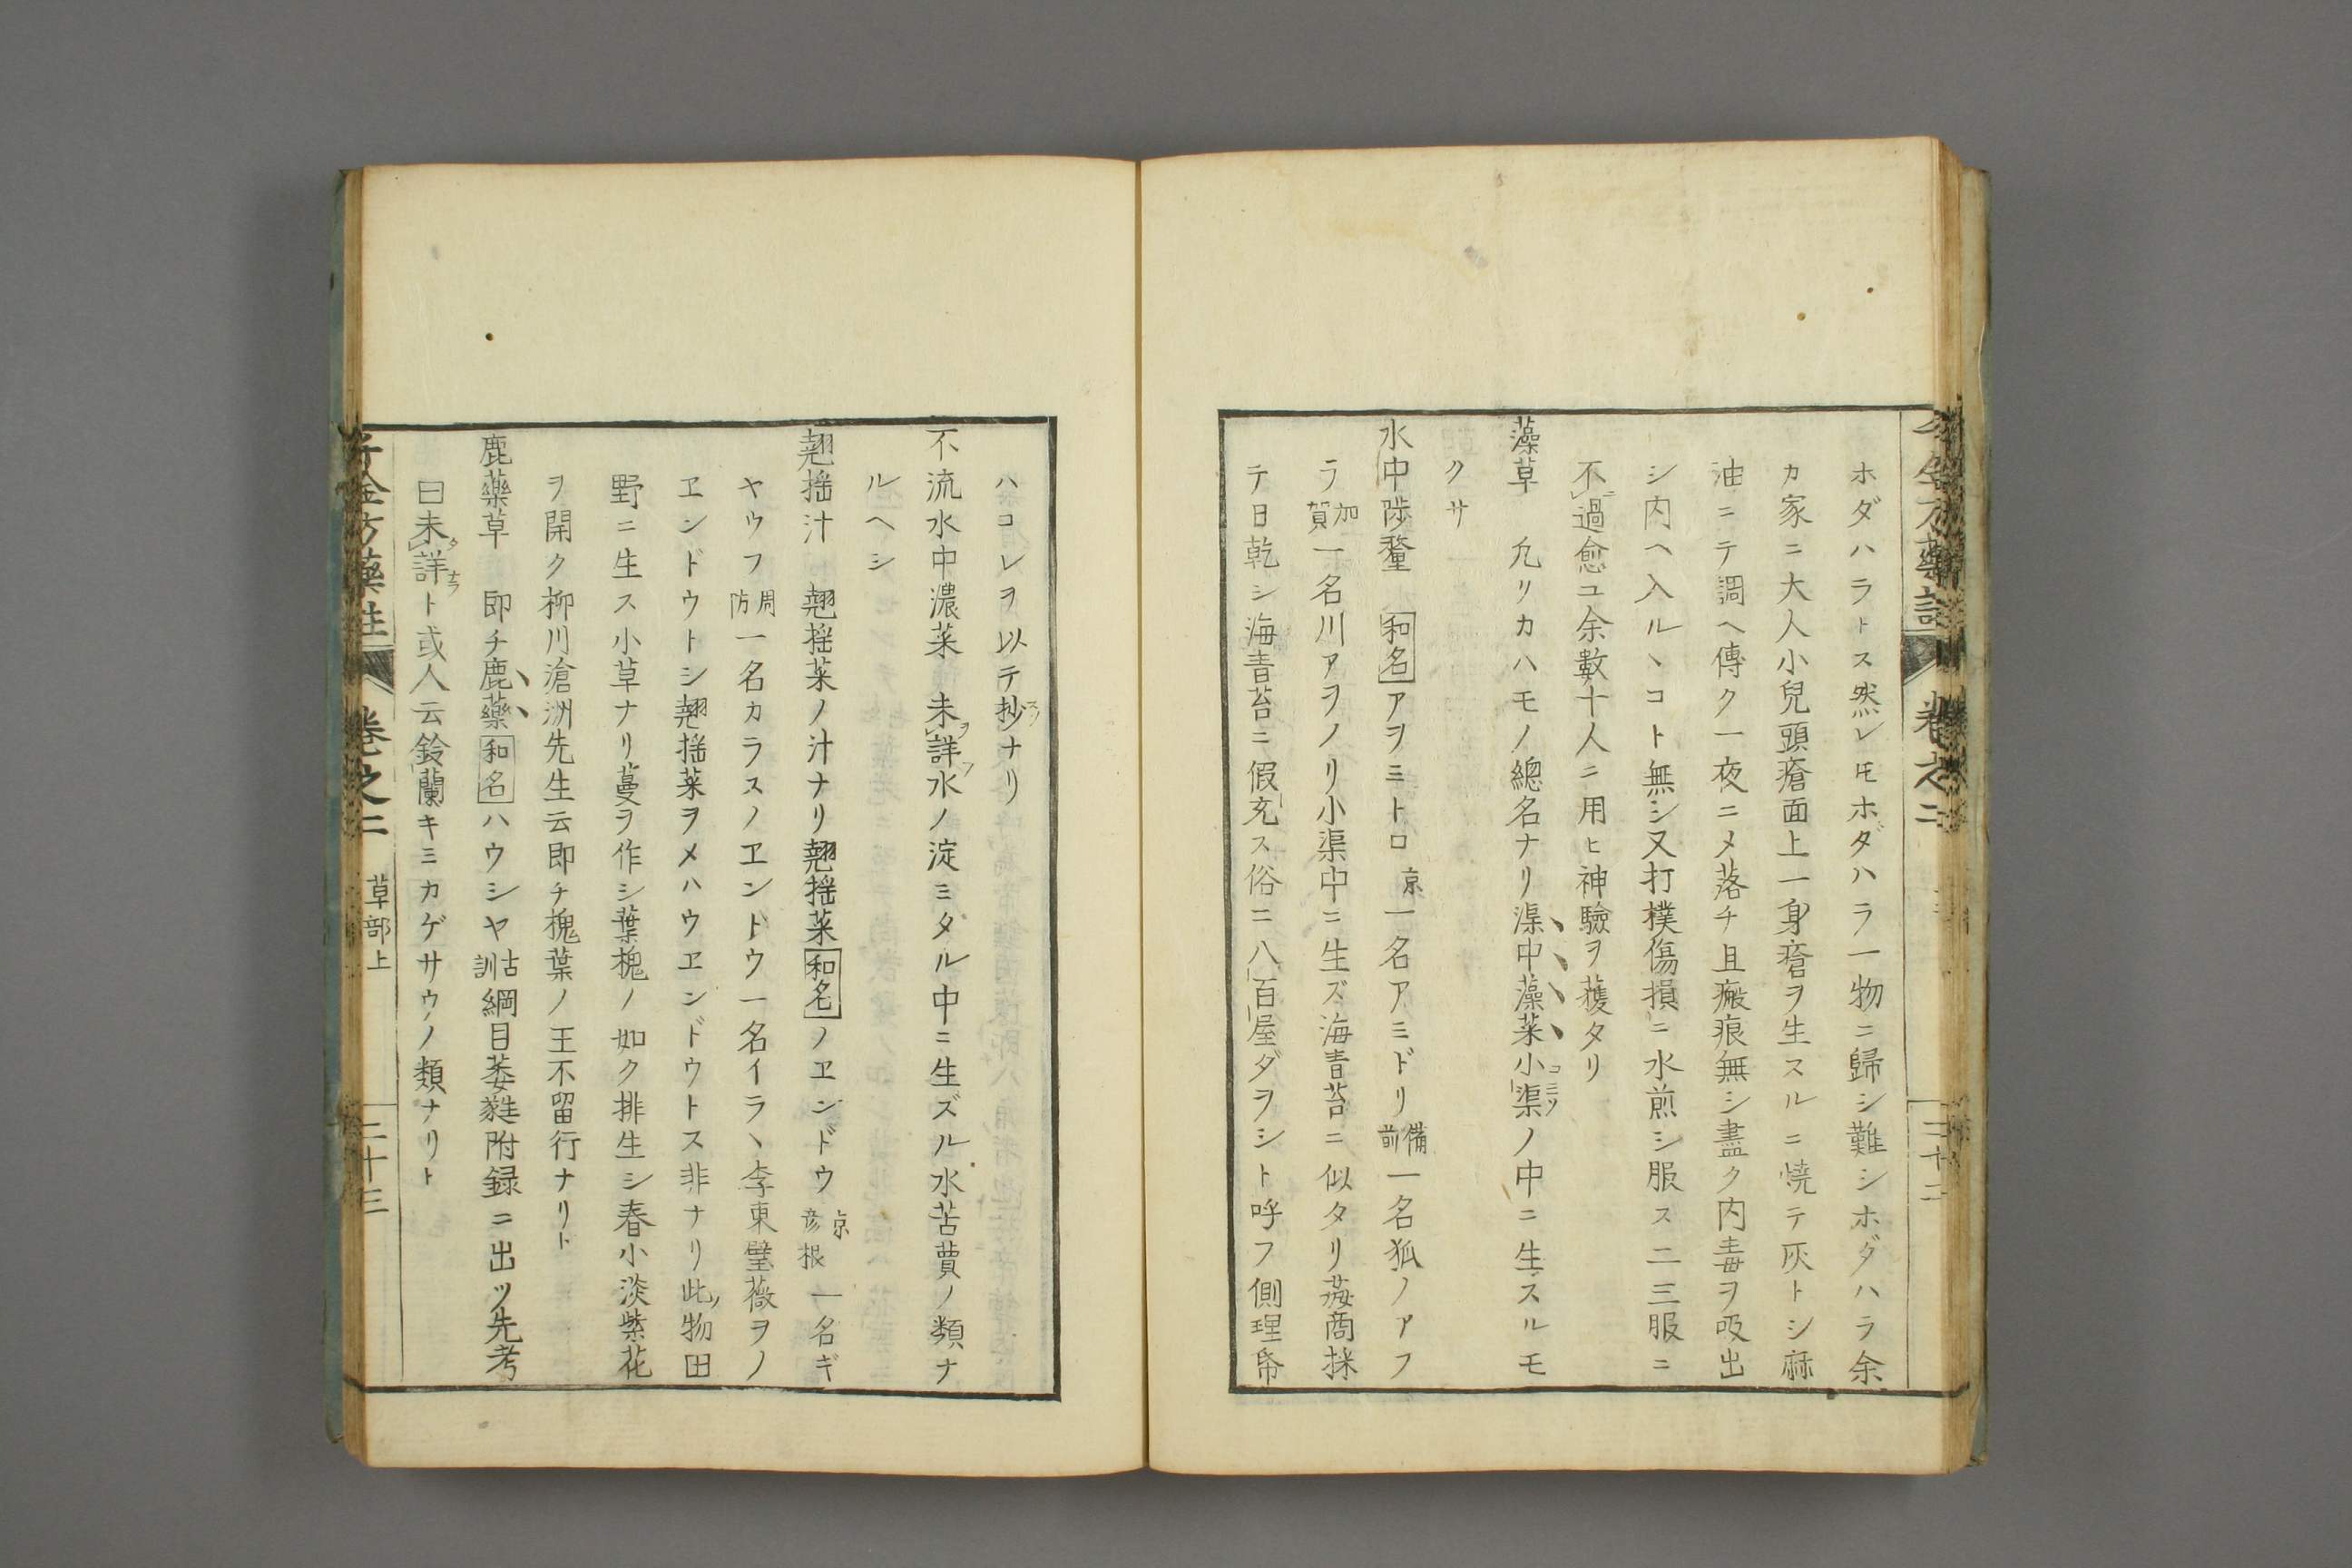 ホダハラトス然レ𪜈ホダハラ一物ニ歸シ難シホダハラ余
カ家ニ大人小兒頭瘡面上一身瘡ヲ生スルニ燒テ灰トシ麻
油ニテ調ヘ傅ク一夜ニメ落チ且瘢痕無シ盡ク内毒ヲ吸出
シ内ヘ入ルヽコト無シ又打撲傷損ニ水煎シ服ス二三服ニ
不レ過ニ愈ユ余數十人ニ用ヒ神驗ヲ獲タリ
藻草 凢リカハモノ總名ナリ渠中藻菜小渠コミソノ中ニ生スルモ
クサ
水中陟釐 和名アヲミトロ京一名アミドリ備前一名狐ノアフ
ラ加賀一名川アヲノリ小渠中ニ生ズ海青苔ニ似タリ商採
テ日乾シ海青苔ニ假充ス俗ニ八百屋ダヲシト呼フ側理帋
千金方藥 卷之二 草部上 二十三
ハコレヲ以テ抄スノナリ
不流水中濃菜 未ヲ詳フ水ノ淀ミタル中ニ生ズル水苦蕒ノ類ナ
ルヘシ
翹揺汁 翹揺菜ノ汁ナリ翹揺菜和名ノヱンドウ京彦根一名ギ
ヤウフ周防一名カラスノヱンドウ一名イラヽ李東璧薇ヲノ
ヱンドウトシ翹揺菜ヲメハウヱンドウトス非ナリ此ノ物田
野ニ生ス小草ナリ蔓ヲ作シ葉槐ノ如ク排生シ春小淡紫花
ヲ開ク柳川滄洲先生云即チ槐葉ノ王不留行ナリト
鹿藥草 即チ鹿藥和名ハウシヤ古訓綱目萎蕤附録ニ出ツ先考
曰未タ詳ナラト或人云鈴蘭キミカゲサウノ類ナリト